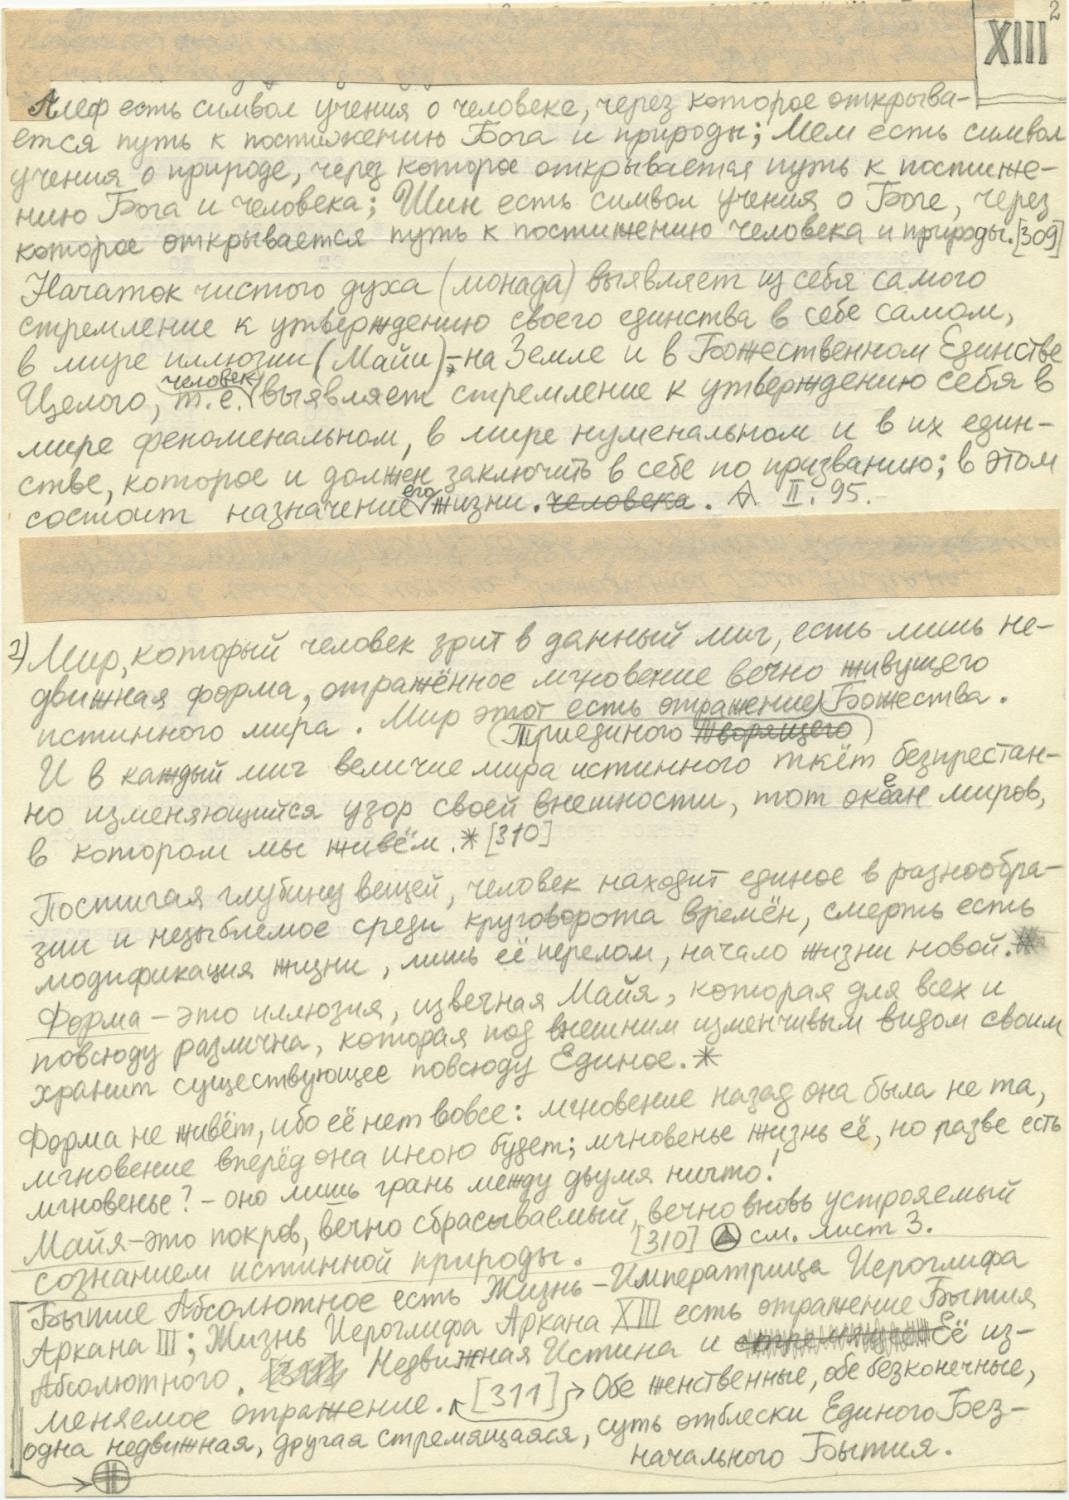 XIII 2
Алеф есть символ учения о человеке, через которое открыва-
ется путь к постижению Бога и природы; Мем есть символ
учения о природе, через которое открывается путь к постиже-
нию Бога и человека; Шин есть символ учения о Боге, через
которое открывается путь к постижению человека и природы. [309]
Начаток чистого духа (монада) выявляет из себя самого
стремление к утверждению своего единства в себе самом,
в мире иллюзии (Майи), - на Земле и в Божественном Единстве
Целого, т.е. человек выявляет стремление к утверждению себя в
мире феноменальном, в мире нуменальном и в их един-
стве, которое и должен заключить в себе по призванию; в этом
состоит назначение его жизни. человека. II. 95.
1) Мир, который человек зрит в данный миг, есть лишь не-
движная форма, отражённое мгновение вечно живущего
истинного мира. Мир этот есть отражение Божества.
(Триединого Творящего)
И в каждый миг величие мира истинного ткёт безпрестан-
но изменяющийся узор своей внешности, тот океан миров,
в котором мы живём. * [310]
Постигая глубину вещей, человек находит единое в разнообра-
зии и незыблемое среди круговорота времён, смерть есть
модификация жизни, лишь её перелом, начало жизни новой.
Форма – это иллюзия, извечная Майя, которая для всех и
повсюду различна, которая под внешним изменчивым видом своим
хранит существующее повсюду Единое. *
Форма не живёт, ибо её нет вовсе: мгновение назад она была не та,
мгновение вперёд она иною будет; мгновенье жизнь её, но разве есть
мгновенье? – оно лишь грань между двумя ничто!
Майя – это покров, вечно сбрасываемый, вечно вновь устрояемый
сознанием истинной природы. [310] см. лист 3.
Бытие Абсолютное есть Жизнь – Императрица Иероглифа
Аркана III; Жизнь Иероглифа Аркана XIII есть отражение Бытия
Абсолютного. Недвижная Истина и Её из-
меняемое отражение. [311] Обе женственные, обе безконечные,
одна недвижная, другая стремящаяся, суть отблески Единого Без-
начального Бытия.